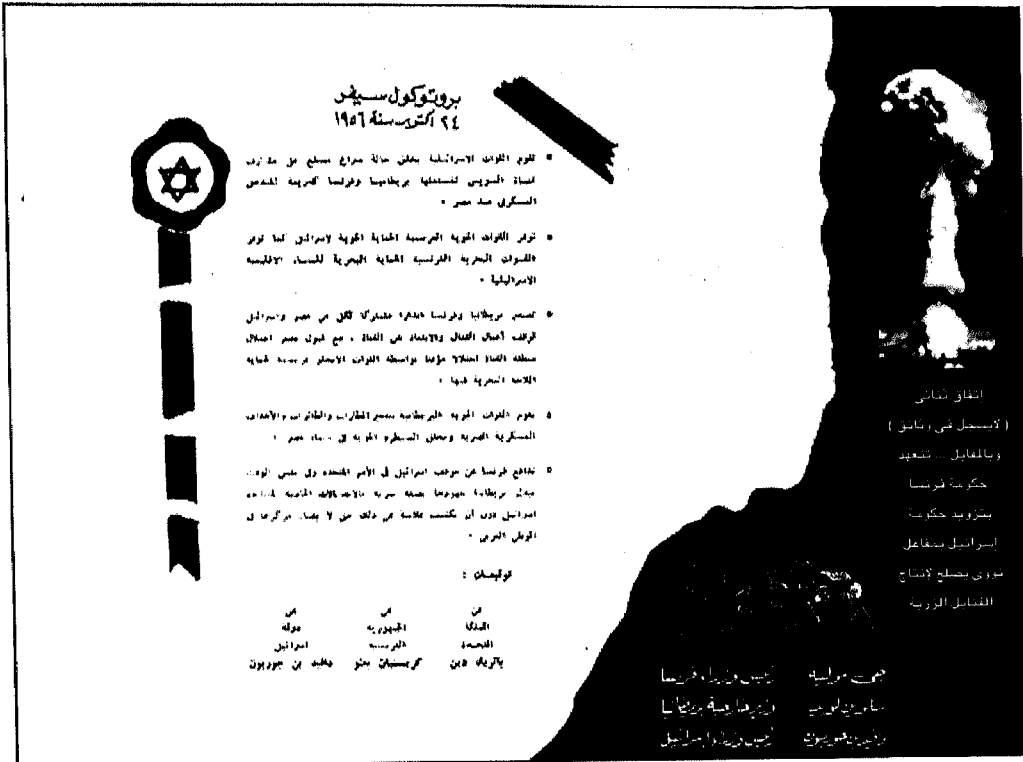 بروتوكول سيفر
٢٤ اكتوبر سنة ١٩٥٦
تقوم القوات الاسرائيلية بخلق حالة صراع مسلح على مشارف
قناة السويس لتستغلها بريطانيا وفرنسا كذريعة للتدخل
العسكرى ضد مصر .
توفر القوات الجوية الفرنسية الحماية الجوية لاسرائيل كما توفر
القوات البحرية الفرنسية الحماية البحرية للمياه الاقليمية
الاسرائيلية .
تصدر بريطانيا وفرنسا انذارا مشتركا لكل من مصر واسرائيل
لوقف أعمال القتال والابتعاد عن القناة ، مع قبول مصر احتلال
منطقة القناة احتلالا مؤقتا بواسطة القوات الأنجلو فرنسية لحماية
الملاحة البحرية فيها .
تقوم القوات الجوية البريطانية بتدمير المطارات والطائرات والأهداف
العسكرية المصرية وتحقق السيطرة الجوية فى سماء مصر .
تدافع فرنسا عن موقف اسرائيل فى الأمم المتحدة وفى نفس الوقت
تبذل بريطانيا جهودها بصفة سرية بالاتصالات الخاصة لمساندة
اسرائيل دون أن تكشف علانية عن ذلك حتى لا يضار مركزها فى
الوطن العربى .
توقيعات :
عن عن عن
المملكة الجمهورية دولة
المتحدة الفرنسية اسرائيل
باتريك دين كريستيان بينو دافيد بن جوريون
إتفاق ثنائى
( لايسجل فى وثائق )
وبالمقابل ... تتعهد
حكومة فرنسا
بتزويد حكومة
إسرائيل بمفاعل
نووى يصلح لإنتاج
القنابل الذرية
جى موليه رئيس وزراء فرنسا
سلوين لويد وزير خارجية بريطانيا
دافيد بن جوريون رئيس وزراء إسرائيل